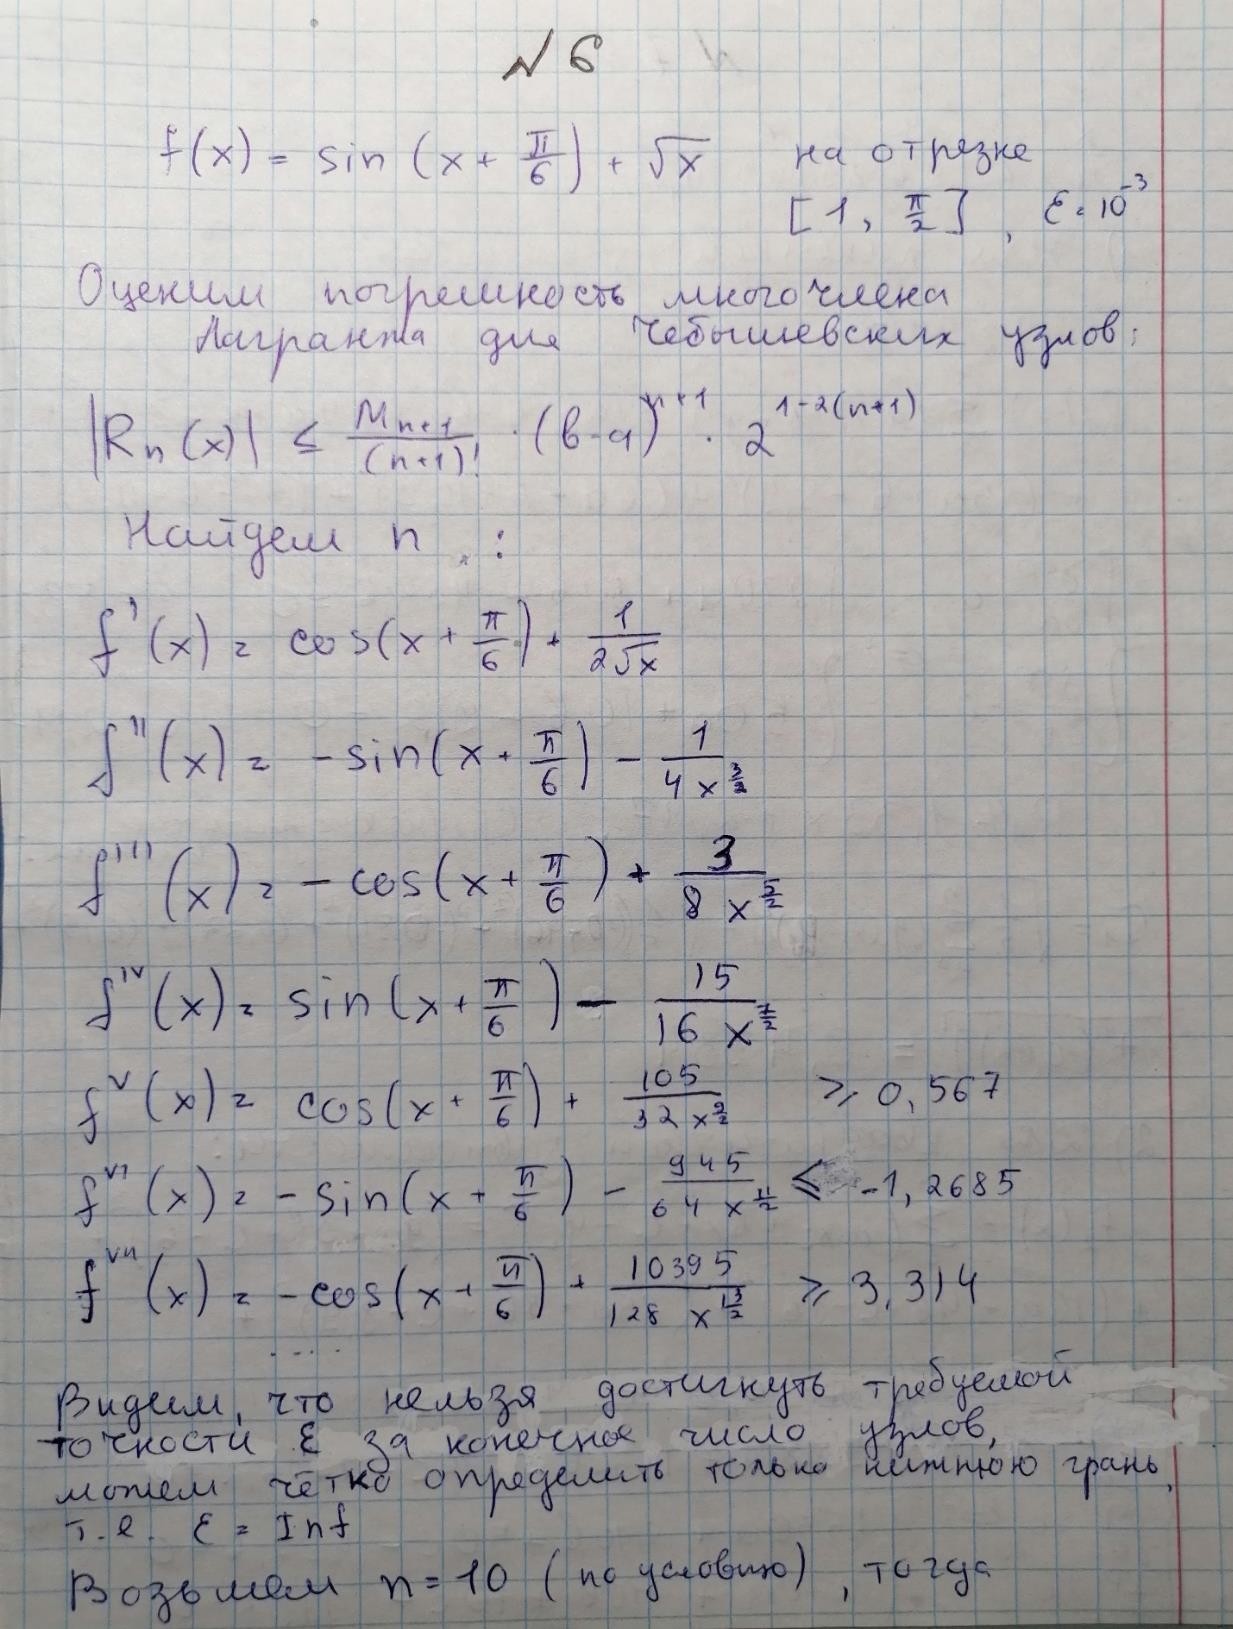 № 6
f(x) = sin (x + π/6) + √x на отрезке
[1, π/2], ε = 10^-3
Оценим погрешность многочлена
Лагранжа для Чебышевских узлов:
|Rn(x)| ≤ Mn+1/(n+1)! · (b-a)^n+1 · 2^1-2(n+1)
Найдем n :
f'(x) = cos(x + π/6) + 1/2√x
f''(x) = -sin(x + π/6) - 1/4x^3/2
f'''(x) = -cos(x + π/6) + 3/8x^5/2
f^IV(x) = sin(x + π/6) - 15/16x^7/2
f^V(x) = cos(x + π/6) + 105/32x^9/2 ≥ 0,567
f^VI(x) = -sin(x + π/6) - 945/64x^11/2 ≤ -1,2685
f^VII(x) = -cos(x + π/6) + 10395/128x^13/2 ≥ 3,314
.....
Видем, что нельзя достигнуть требуемой
точности ε за конечное число узлов,
можем чётко определить только нижнюю грань,
т.е. ε = Inf
Возьмем n = 10 (по условию), тогда